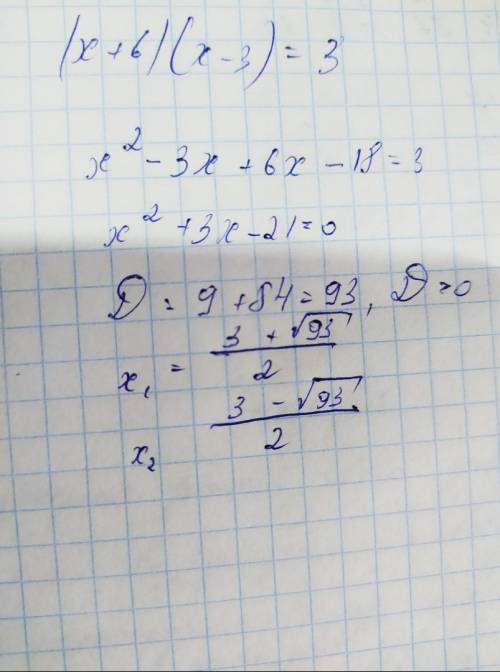 (x+6)(x-3)=3
x² - 3x + 6x - 18 = 3
x² + 3x - 21 = 0
D = 9 + 84 = 93, D > 0
x₁ = (3 + √93)/2
x₂ (3 - √93)/2